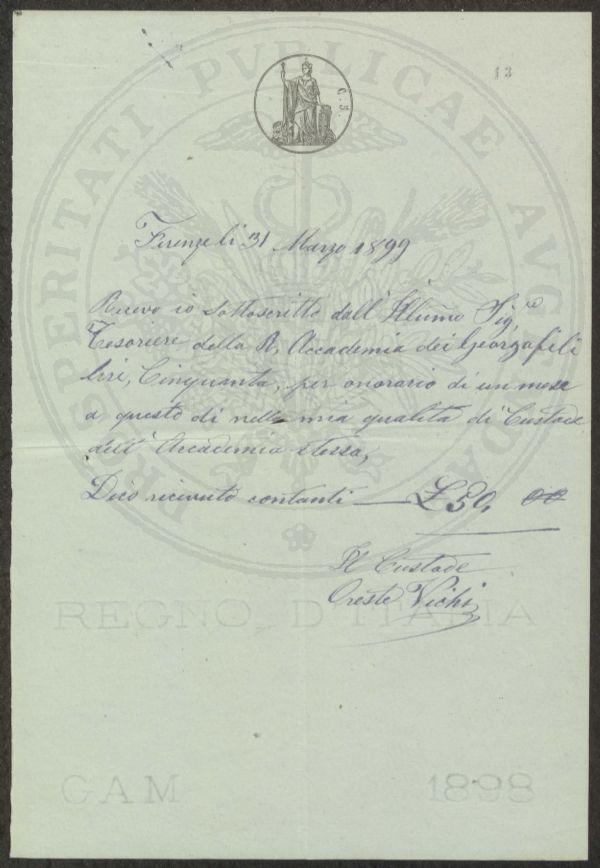 13
PROSPERITATI PVBLICAE AVGENDAE
C. 5.
Firenze li 31 Marzo 1899
Ricevo io sottoscritto dall' Illumo Sig.re
Tesoriere della R. Accademia dei Georgofili
lire, Cinquanta, per onorario di un mese
a questo dì nella mia qualità di Custode
dell' Accademia stessa,
Dico ricevuto contanti — £ 50, 00
Il Custode
Oreste Vichi
REGNO D'ITALIA
GAM 1898